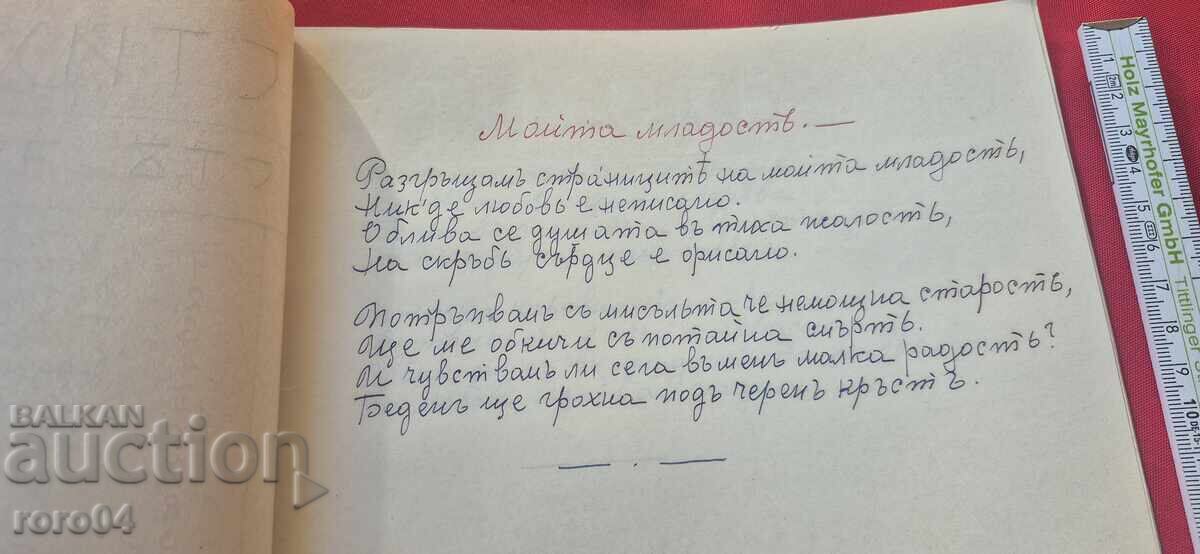 Мойта младость. —
Разгръщамъ страницитѣ на мойта младость,
Никѫде любовь е неписано.
Облива се душата въ тиха жалость,
На скръбь сърдце е орисано.
Потръпвамъ съ мисъльта че немощна старость,
Ще ме обкичи съ потайна смърть.
И чувствамъ ли сега въ мень малка радость?
Беденъ ще грохна подъ черенъ кръстъ.
BALKAN
auction
roro04
Holz Mayrhofer GmbH
1 2 3 4 5 6 7 8 9 10
2m